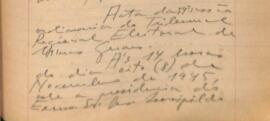 Acta da 9ª sessão
ordinaria do Tribunal
Regional Eleitoral de
Minas Geraes.
Ás 14 horas
do dia oito (8) de
Novembro de 1945
sob a presidencia do
Exmo Sr. Des. Leovigildo